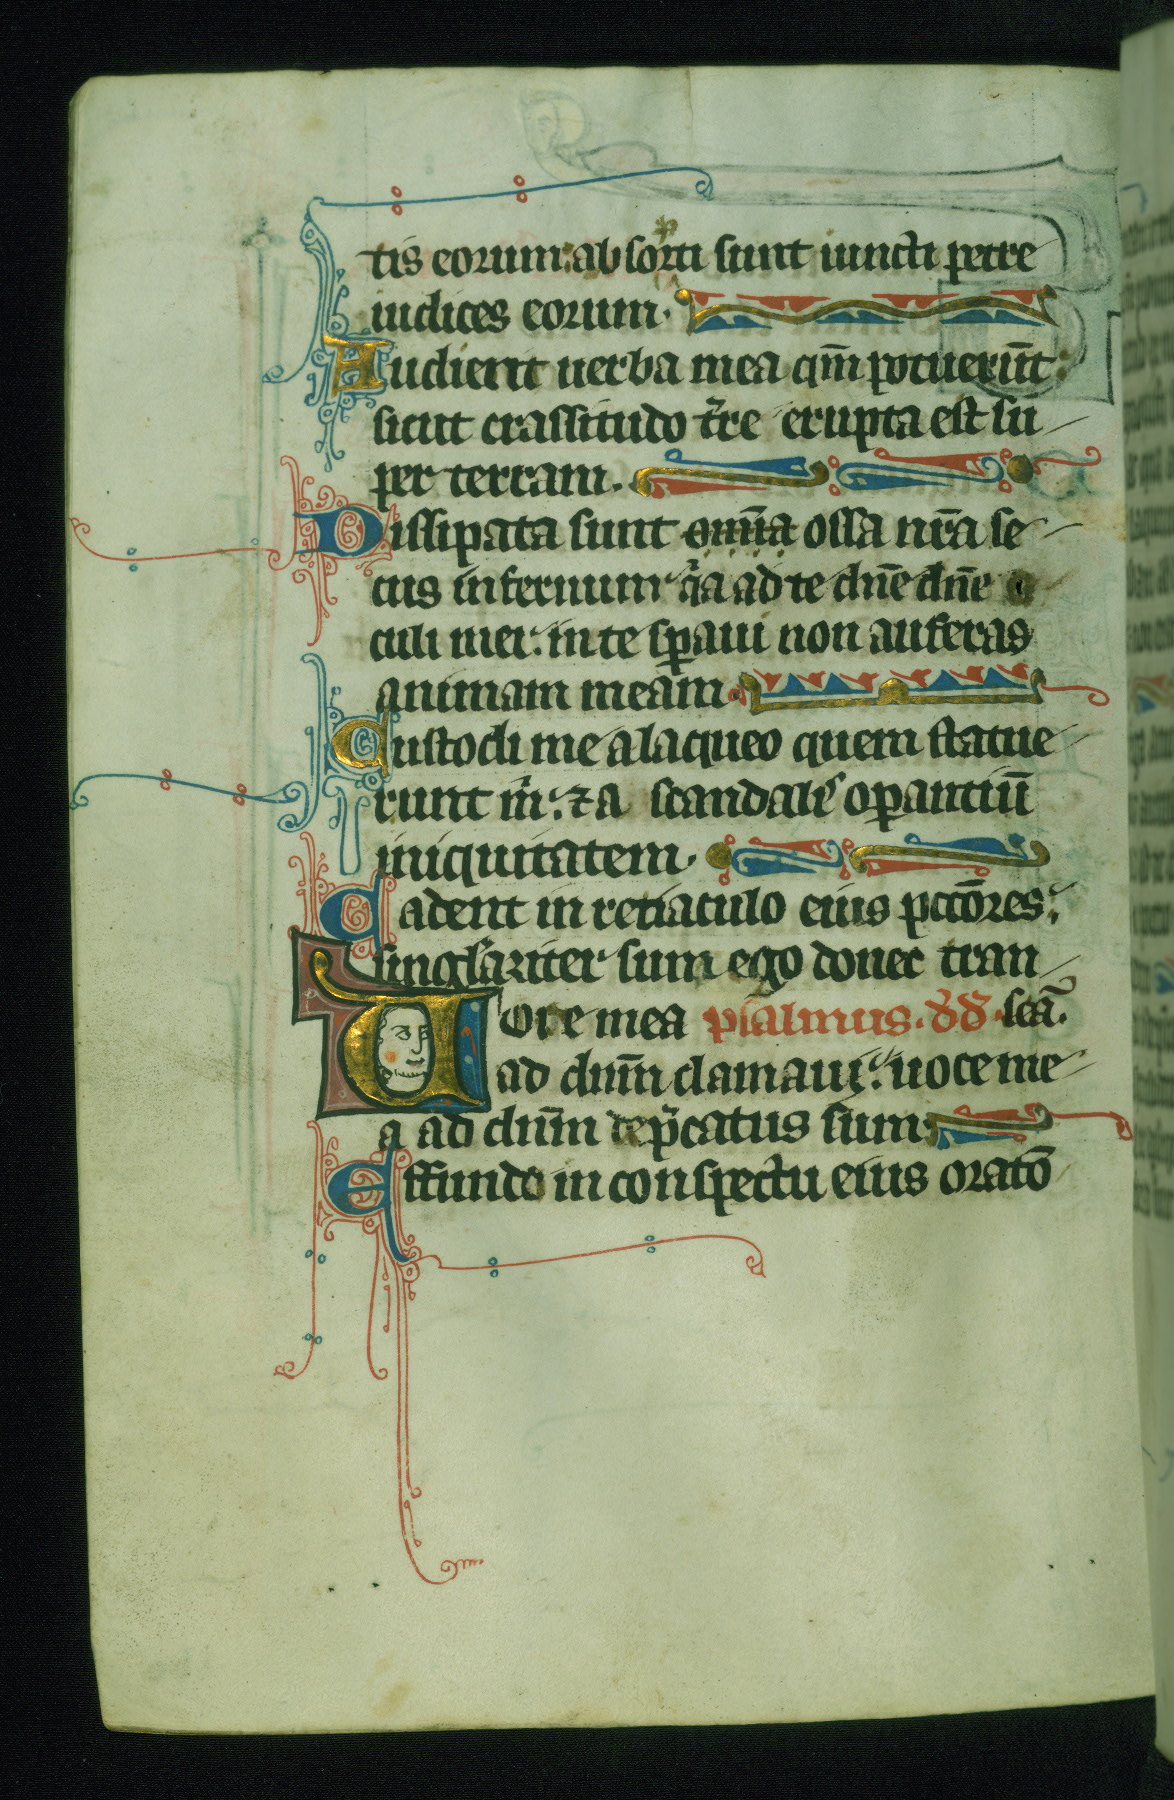 tis eorum: absorti sunt iuncti petre
iudices eorum.
Audient uerba mea qm̄ potuerūt:
sicut crassitudo t̄re erupta est su
per terram.
Dissipata sunt omīa ossa nr̄a se
cus infernum: q̄a ad te dn̄e dn̄e o
culi mei: in te sꝑaui non auferas
animam meam.
Custodi me a laqueo quem statue
runt m̄: ⁊ a scandal' oꝑantiū
iniquitatem.
Cadent in retiaculo eius pctōres:
singl'ariter sum ego donec tran
Uoce mea psalmus. d̄d. seā.
ad dnm̄ clamaui: uoce me
a ad dnm̄ dep̄catus sum
Effundo in conspectu eius oratō